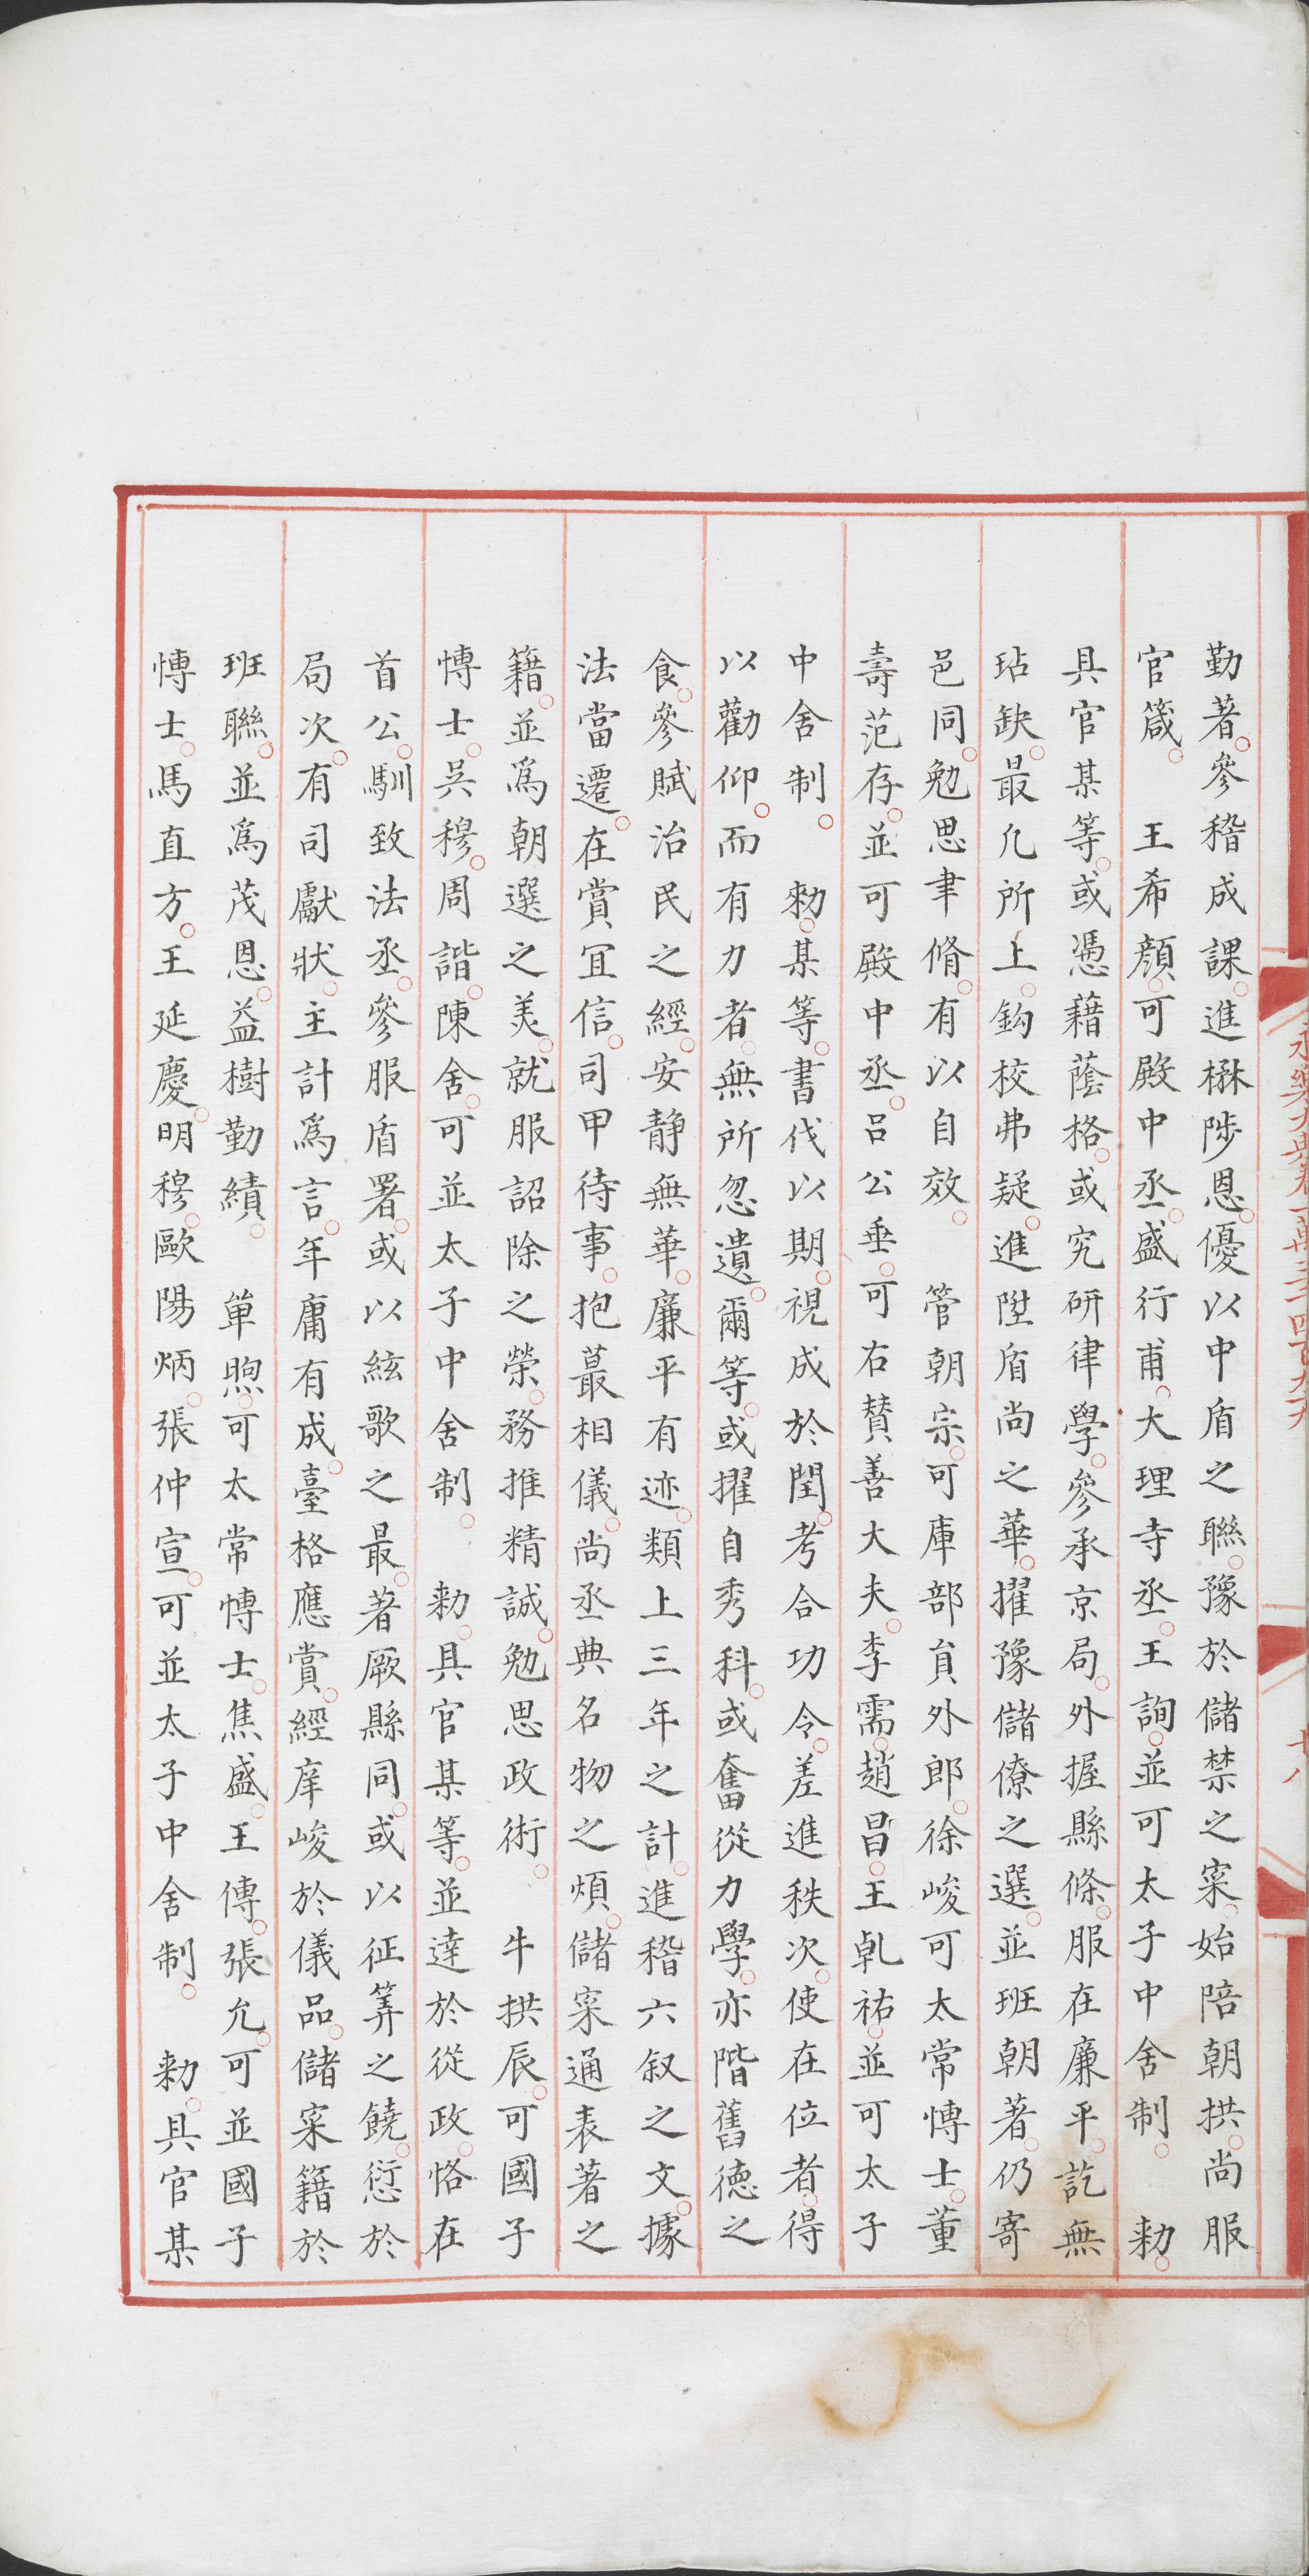 勤著。參稽成課。進楙陟恩。優以中盾之聯。豫於儲禁之寀。始陪朝拱。尚服
官箴。　王希顔。可殿中丞。盛行甫。大理寺丞。王詢。並可太子中舍制。　勑。
具官某等。或憑藉蔭格。或究研律學。參承京局。外握縣條。服在廉平。訖無
玷缺。最凡所上。鈎校弗疑。進陞盾尚之華。擢豫儲僚之選。並班朝著。仍寄
邑同。勉思聿脩。有以自效。　管朝宗。可庫部負外郎。徐峻可太常愽士。董
壽范存。並可殿中丞。吕公垂。可右賛善大夫。李需。趙昌。王乹祐。並可太子
中舍制。　勑。某等。書代以期。視成於閏。考合功令。差進秩次。使在位者。得
以勸仰。而有力者。無所忽遺。爾等。或擢自秀科。或奮從力學。亦階舊德之
食。參賦治民之經。安静無華。廉平有迹。類上三年之計。進稽六叙之文。據
法當遷。在賞冝信。司甲待事。抱蕞相儀。尚丞典名物之煩。儲寀通表著之
籍。並爲朝選之美。就服詔除之榮。務推精誠。勉思政術。　牛拱辰。可國子
愽士。吳穆。周諧。陳舍。可並太子中舍制。　勑。具官某等。並達於從政。恪在
首公。馴致法丞。參服盾署。或以絃歌之最。著厥縣同。或以征筭之饒。愆於
局次。有司獻狀。主計爲言。年庸有成。臺格應賞。經庠峻於儀品。儲寀籍於
班聯。並爲茂恩。益樹勤績。　單煦。可太常愽士。焦盛。王傅。張允。可並國子
愽士。馬直方。王延慶。明穆。歐陽炳。張仲宣。可並太子中舍制。　勑。具官某
永樂大典卷一萬三千四百九十九
十八